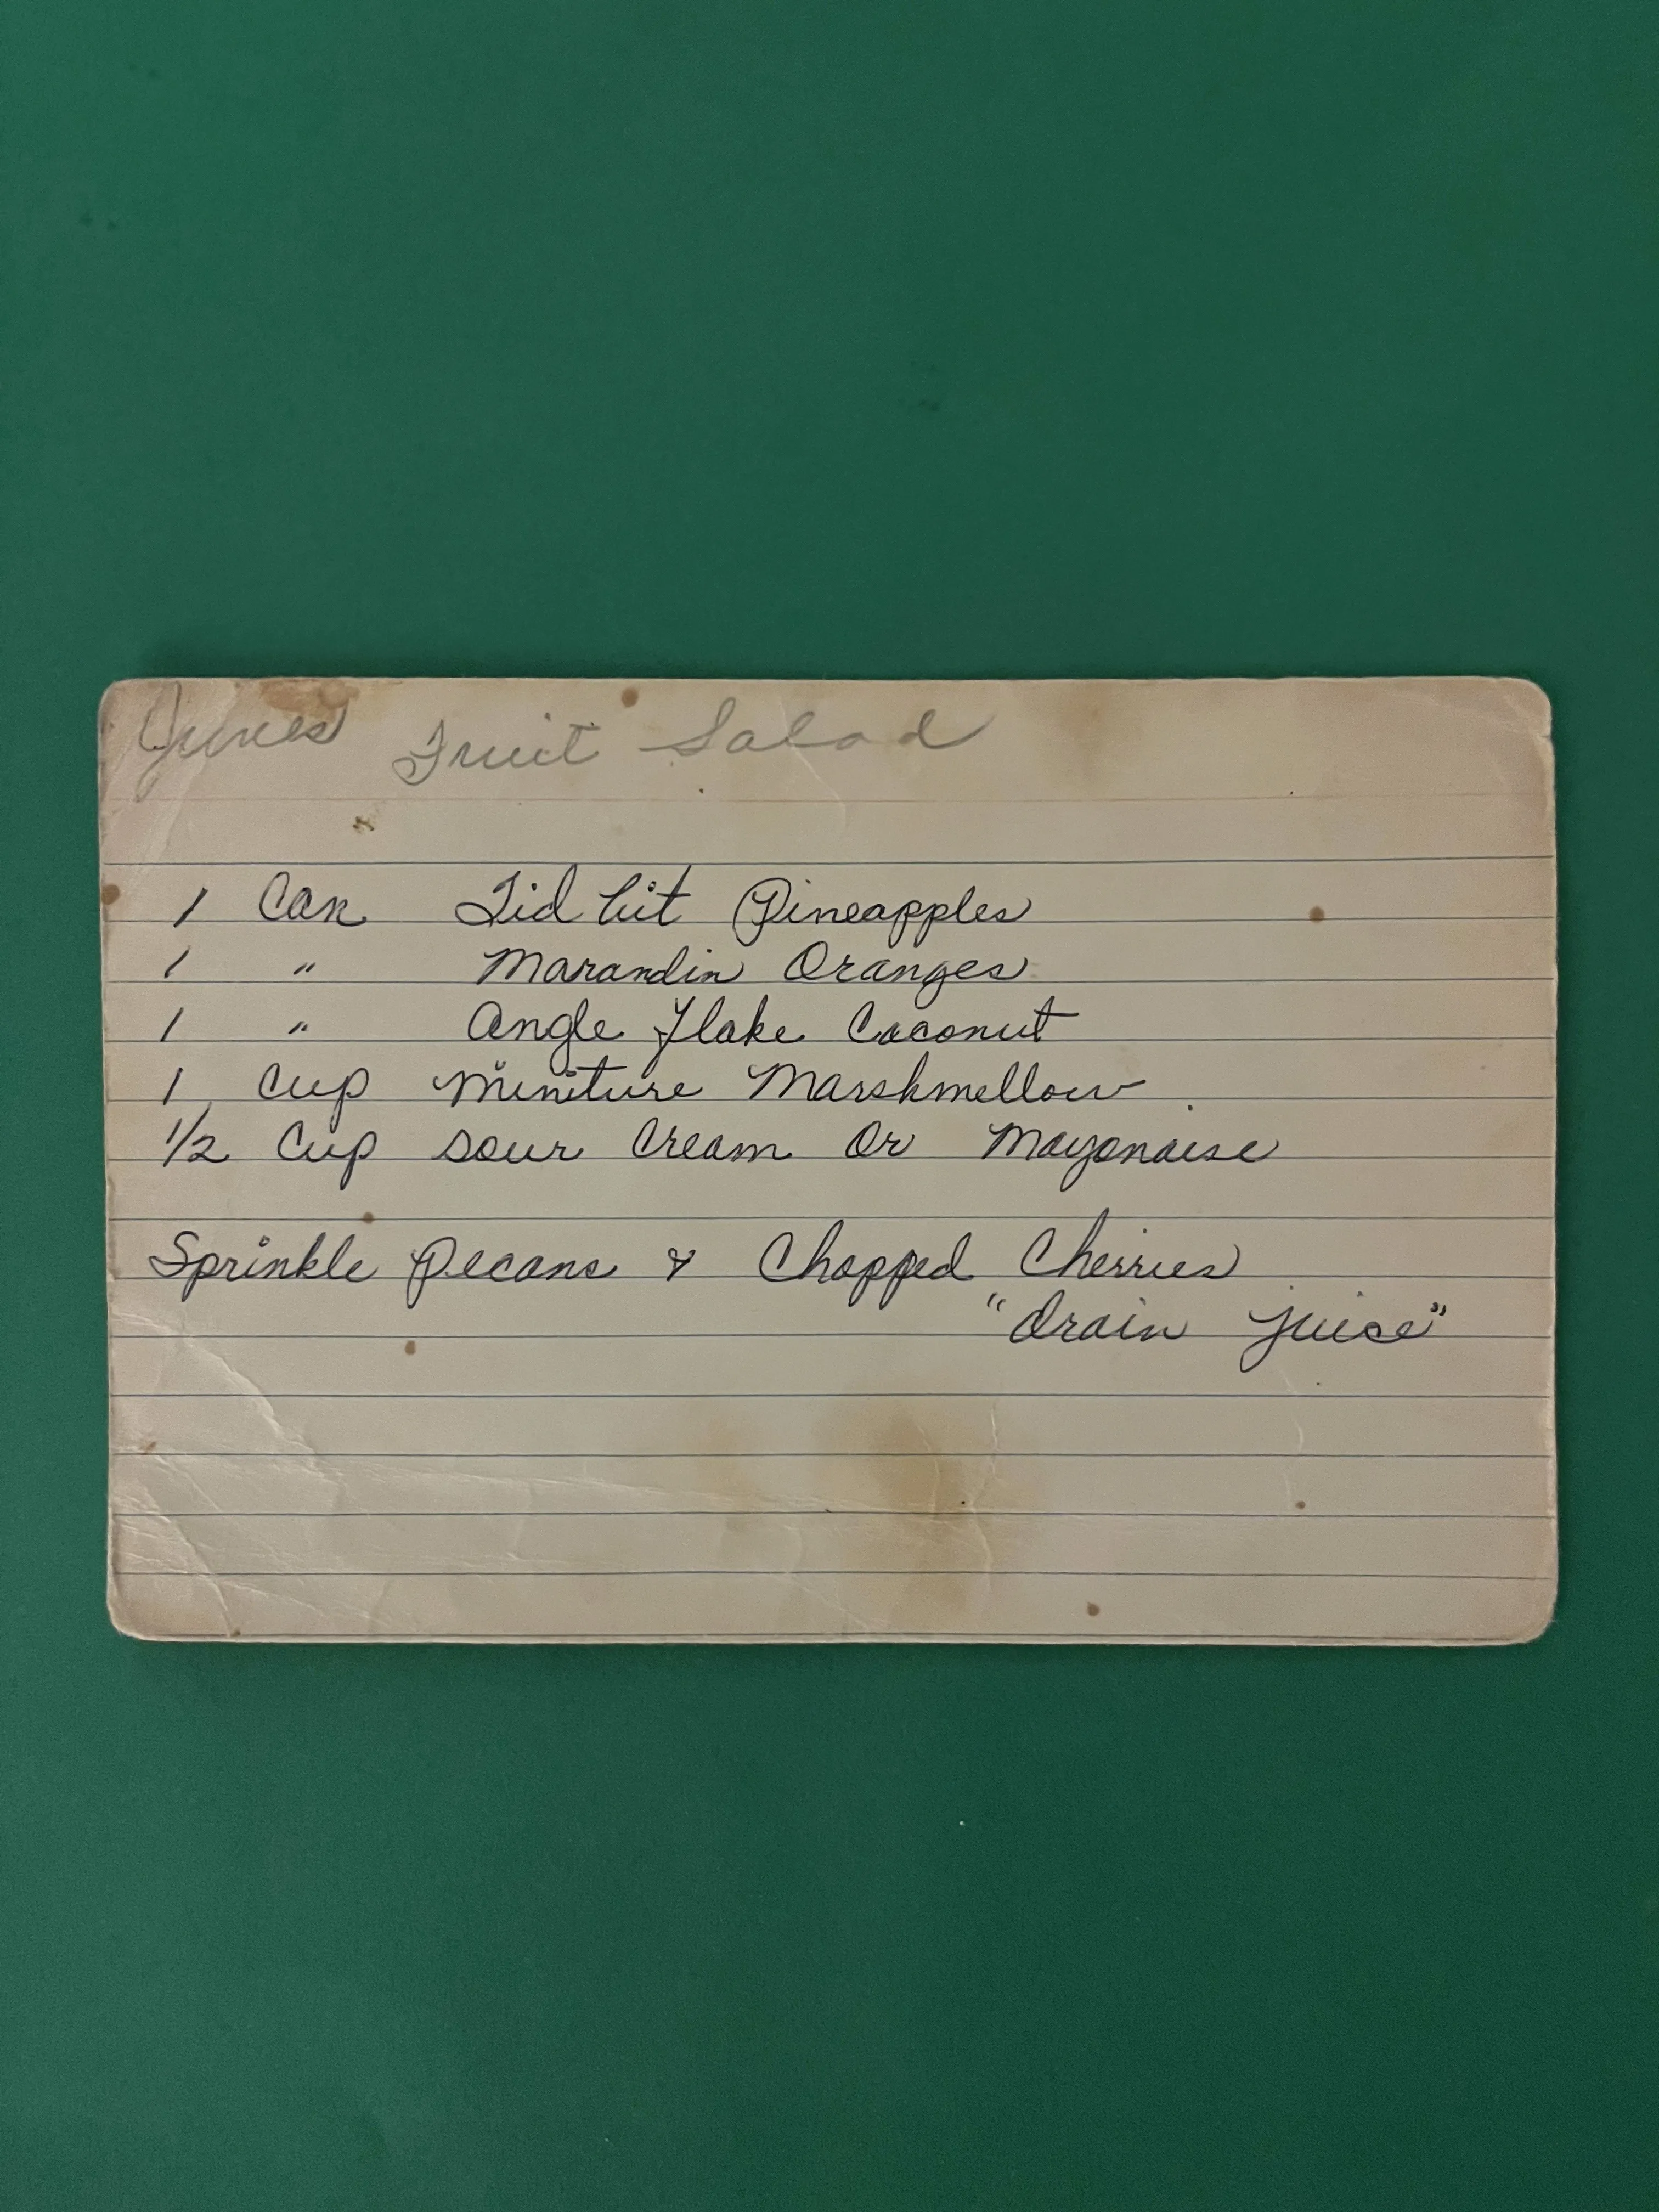 Junes Fruit Salad
1 Can Tid bit Pineapples
1 " Marandin Oranges
1 " Angle Flake Coconut
1 Cup Miniture Marshmellow
1/2 Cup Sour Cream Or Mayonaise
Sprinkle Pecans & Chopped Cherries
"Drain juice"